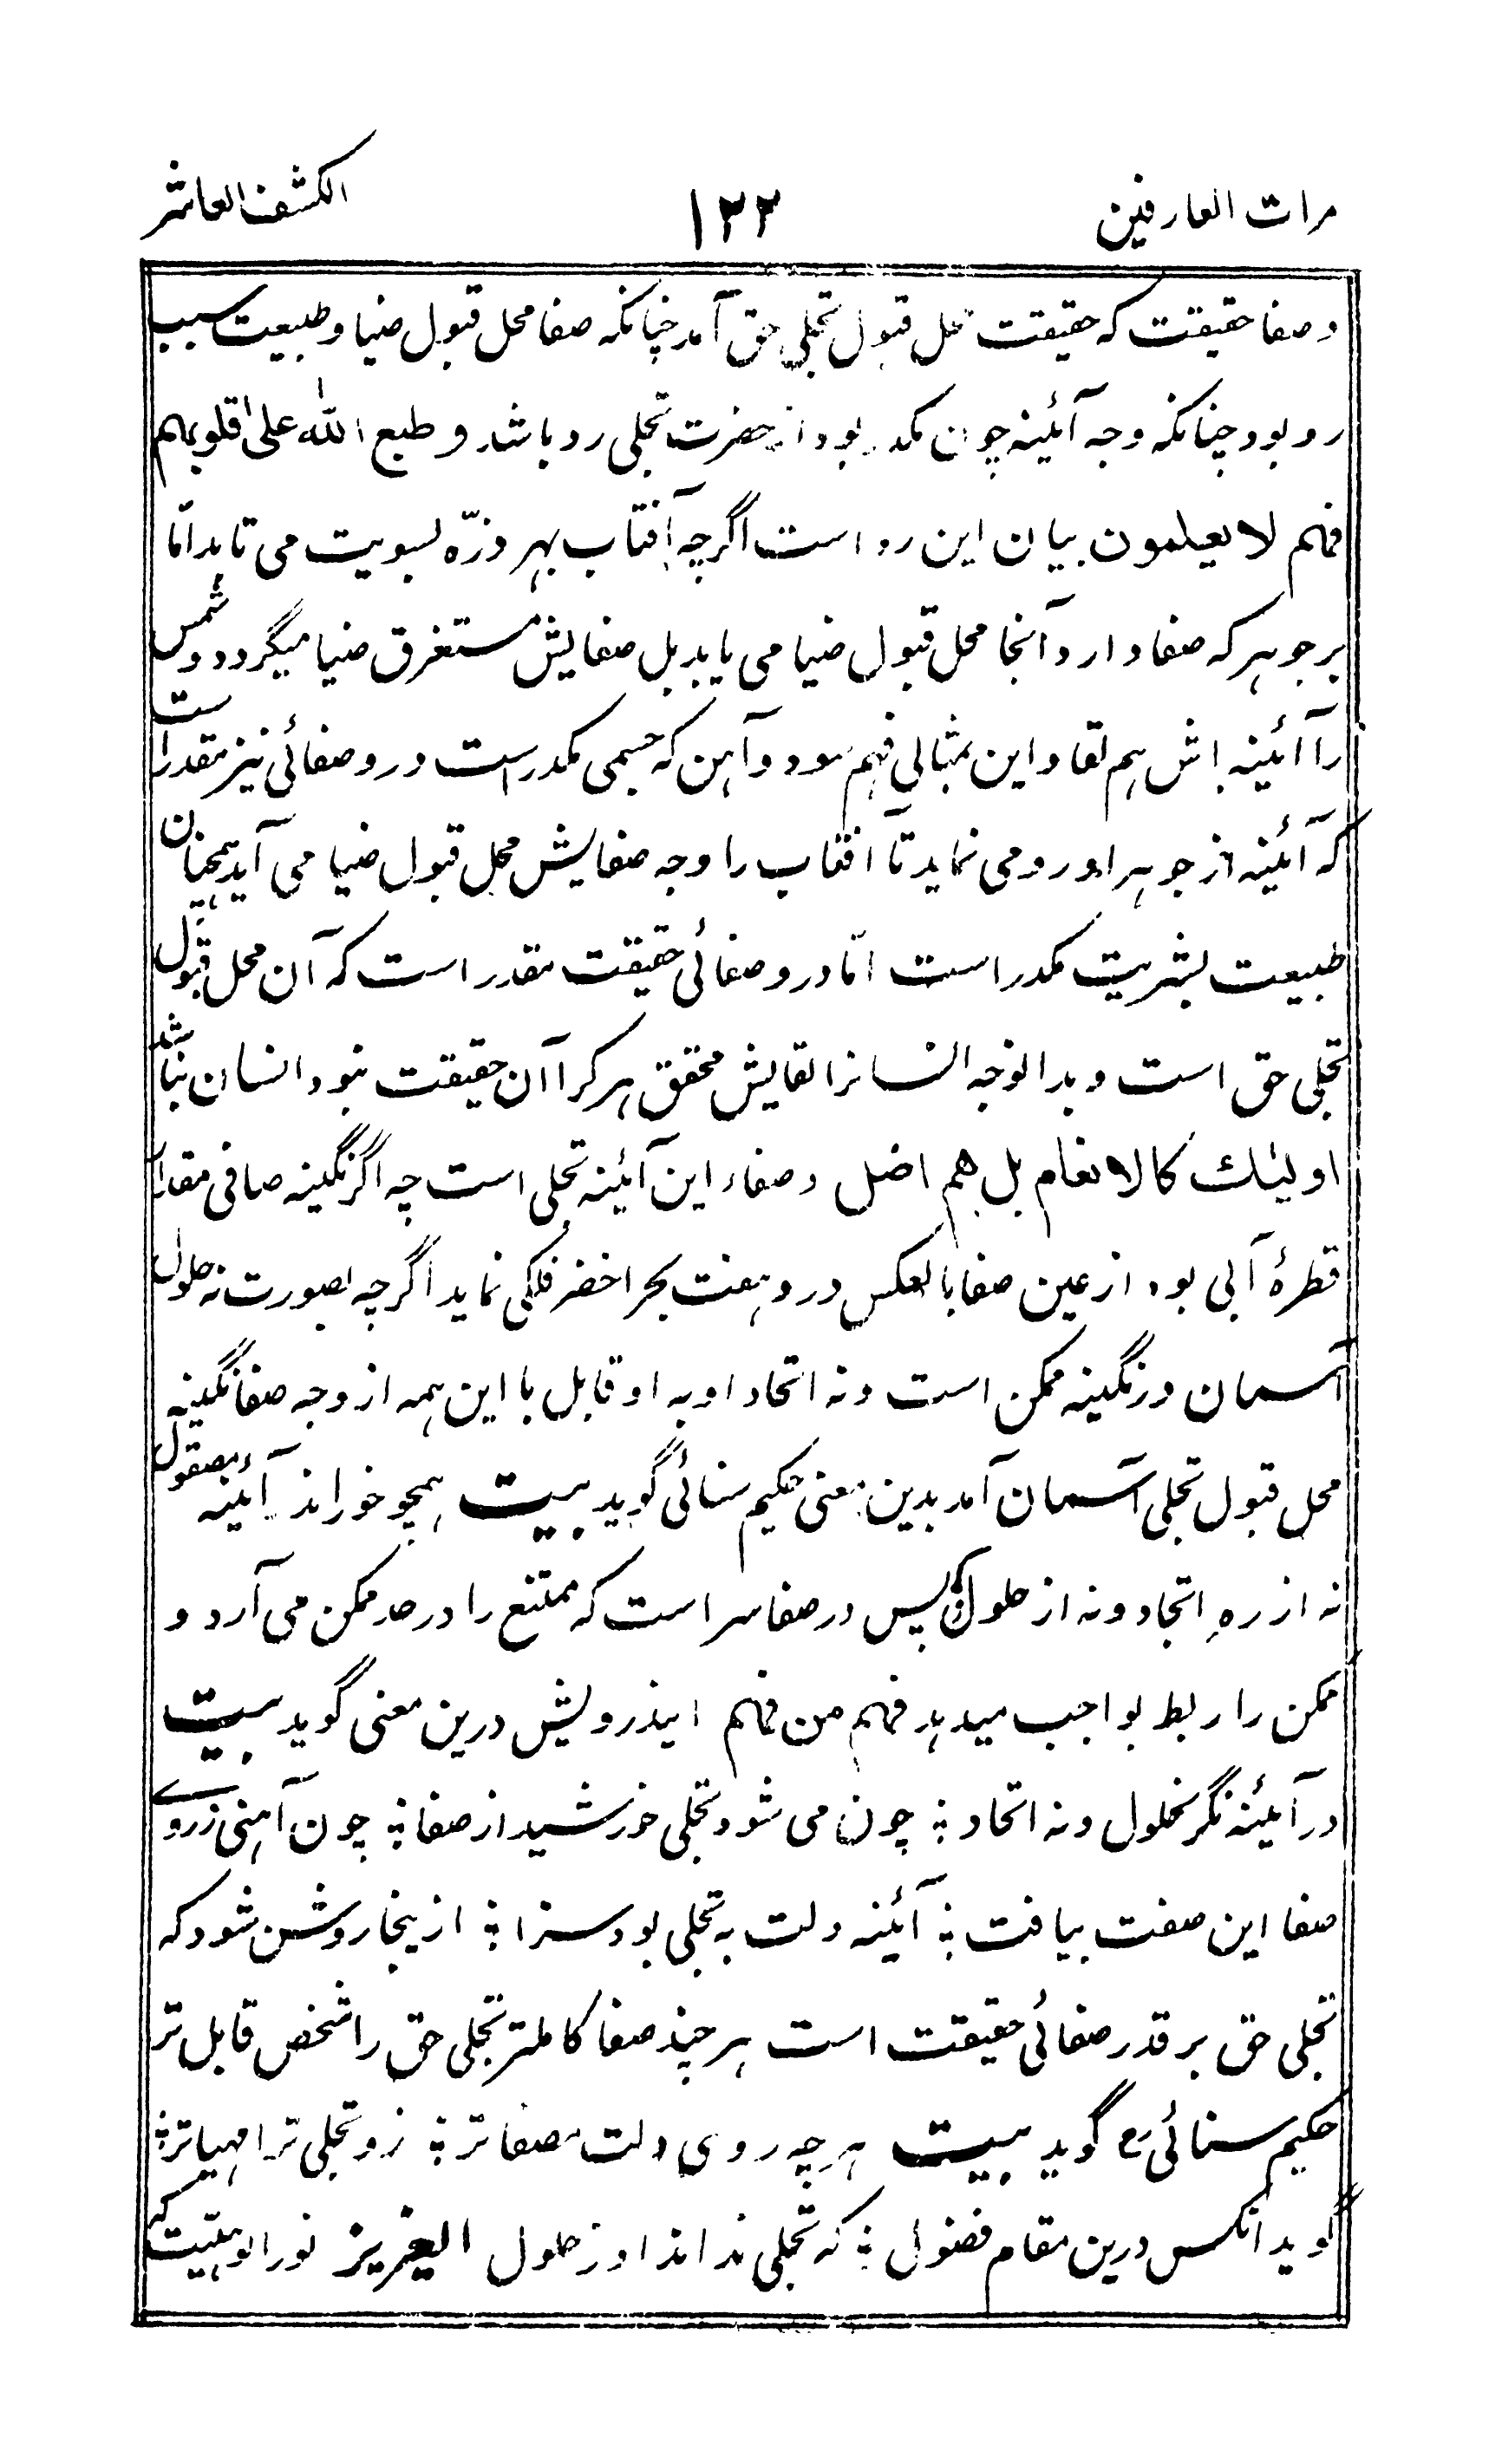 مرات العارفین ۱۲۲ الکشف العاشر
و صفا حقیقت که حقیقت محل قبول تجلی حق آمد چنانکه صفا محل قبول ضیا و طبیعت سبب
رو بود چنانکه وجه آئینه چون مکدر بود از حضرت تجلی رد باشد و طبع الله علی قلوبهم
فهم لا یعلمون بیان این رد است اگرچه آفتاب بهر ذرّه بسویت می تابد امّا
بر جوهر که صفا دارد آنجا محل قبول ضیا می یابد بل صفایش مستغرق ضیا میگردد و شمس
را آئینه اش هم لقا و این بمثالی فهم شود و آهن که جسمی مکدر است در و صفائی نیز مقدر است
که آئینه از جوهر او رو می نماید تا آفتاب را وجه صفایش محل قبول ضیا می آید همچنان
طبیعت بشریت مکدر است امّا در و صفائی حقیقت مقدر است که آن محل قبول
تجلی حق است و بدانوجه انسانرا لقایش محقق هر کرا آن حقیقت نبود انسان نباشد
اولئک کالانعام بل هم اضل و صفاء این آئینه تجلی است چه اگر نگینه صافی مقدار
قطرۀ آبی بود از عین صفا بالعکس درو هفت بحر اخضر فلکی نماید اگرچه بصورت نه حلول
آسمان در نگینه ممکن است و نه اتحاد او به او قابل با این همه از وجه صفا نگینه
محل قبول تجلی آسمان آمد بدین معنی حکیم سنائی گوید بیت همچو خور اندر آئینه مصقول
نه از رهِ اتحاد و نه از حلول پس در صفا سر است که ممتنع را در حد ممکن می آرد و
ممکن را ربط بواجب میدهد فهم من فهم ایندرویش درین معنی گوید بیت
در آئینه نگر نحلول و نه اتحاد ؞ چون می شود تجلی خورشید از صفا ؞ چون آهنی ز روے
صفا این صفت بیافت ؞ آئینه دلت به تجلی بود سزا ؞ ازینجا روشن شود که
تجلی حق بر قدر صفائی حقیقت است هر چند صفا کاملتر تجلی حق را شخص قابل تر
حکیم سنائی رح گوید بیت هر چه روی دلت مصفا تر ؞ زو تجلی ترا مهیا تر ؞
گوید آنکس درین مقام فضولی ؞ که تجلی نداند او ز حلول العزیز نور الوهیّت که